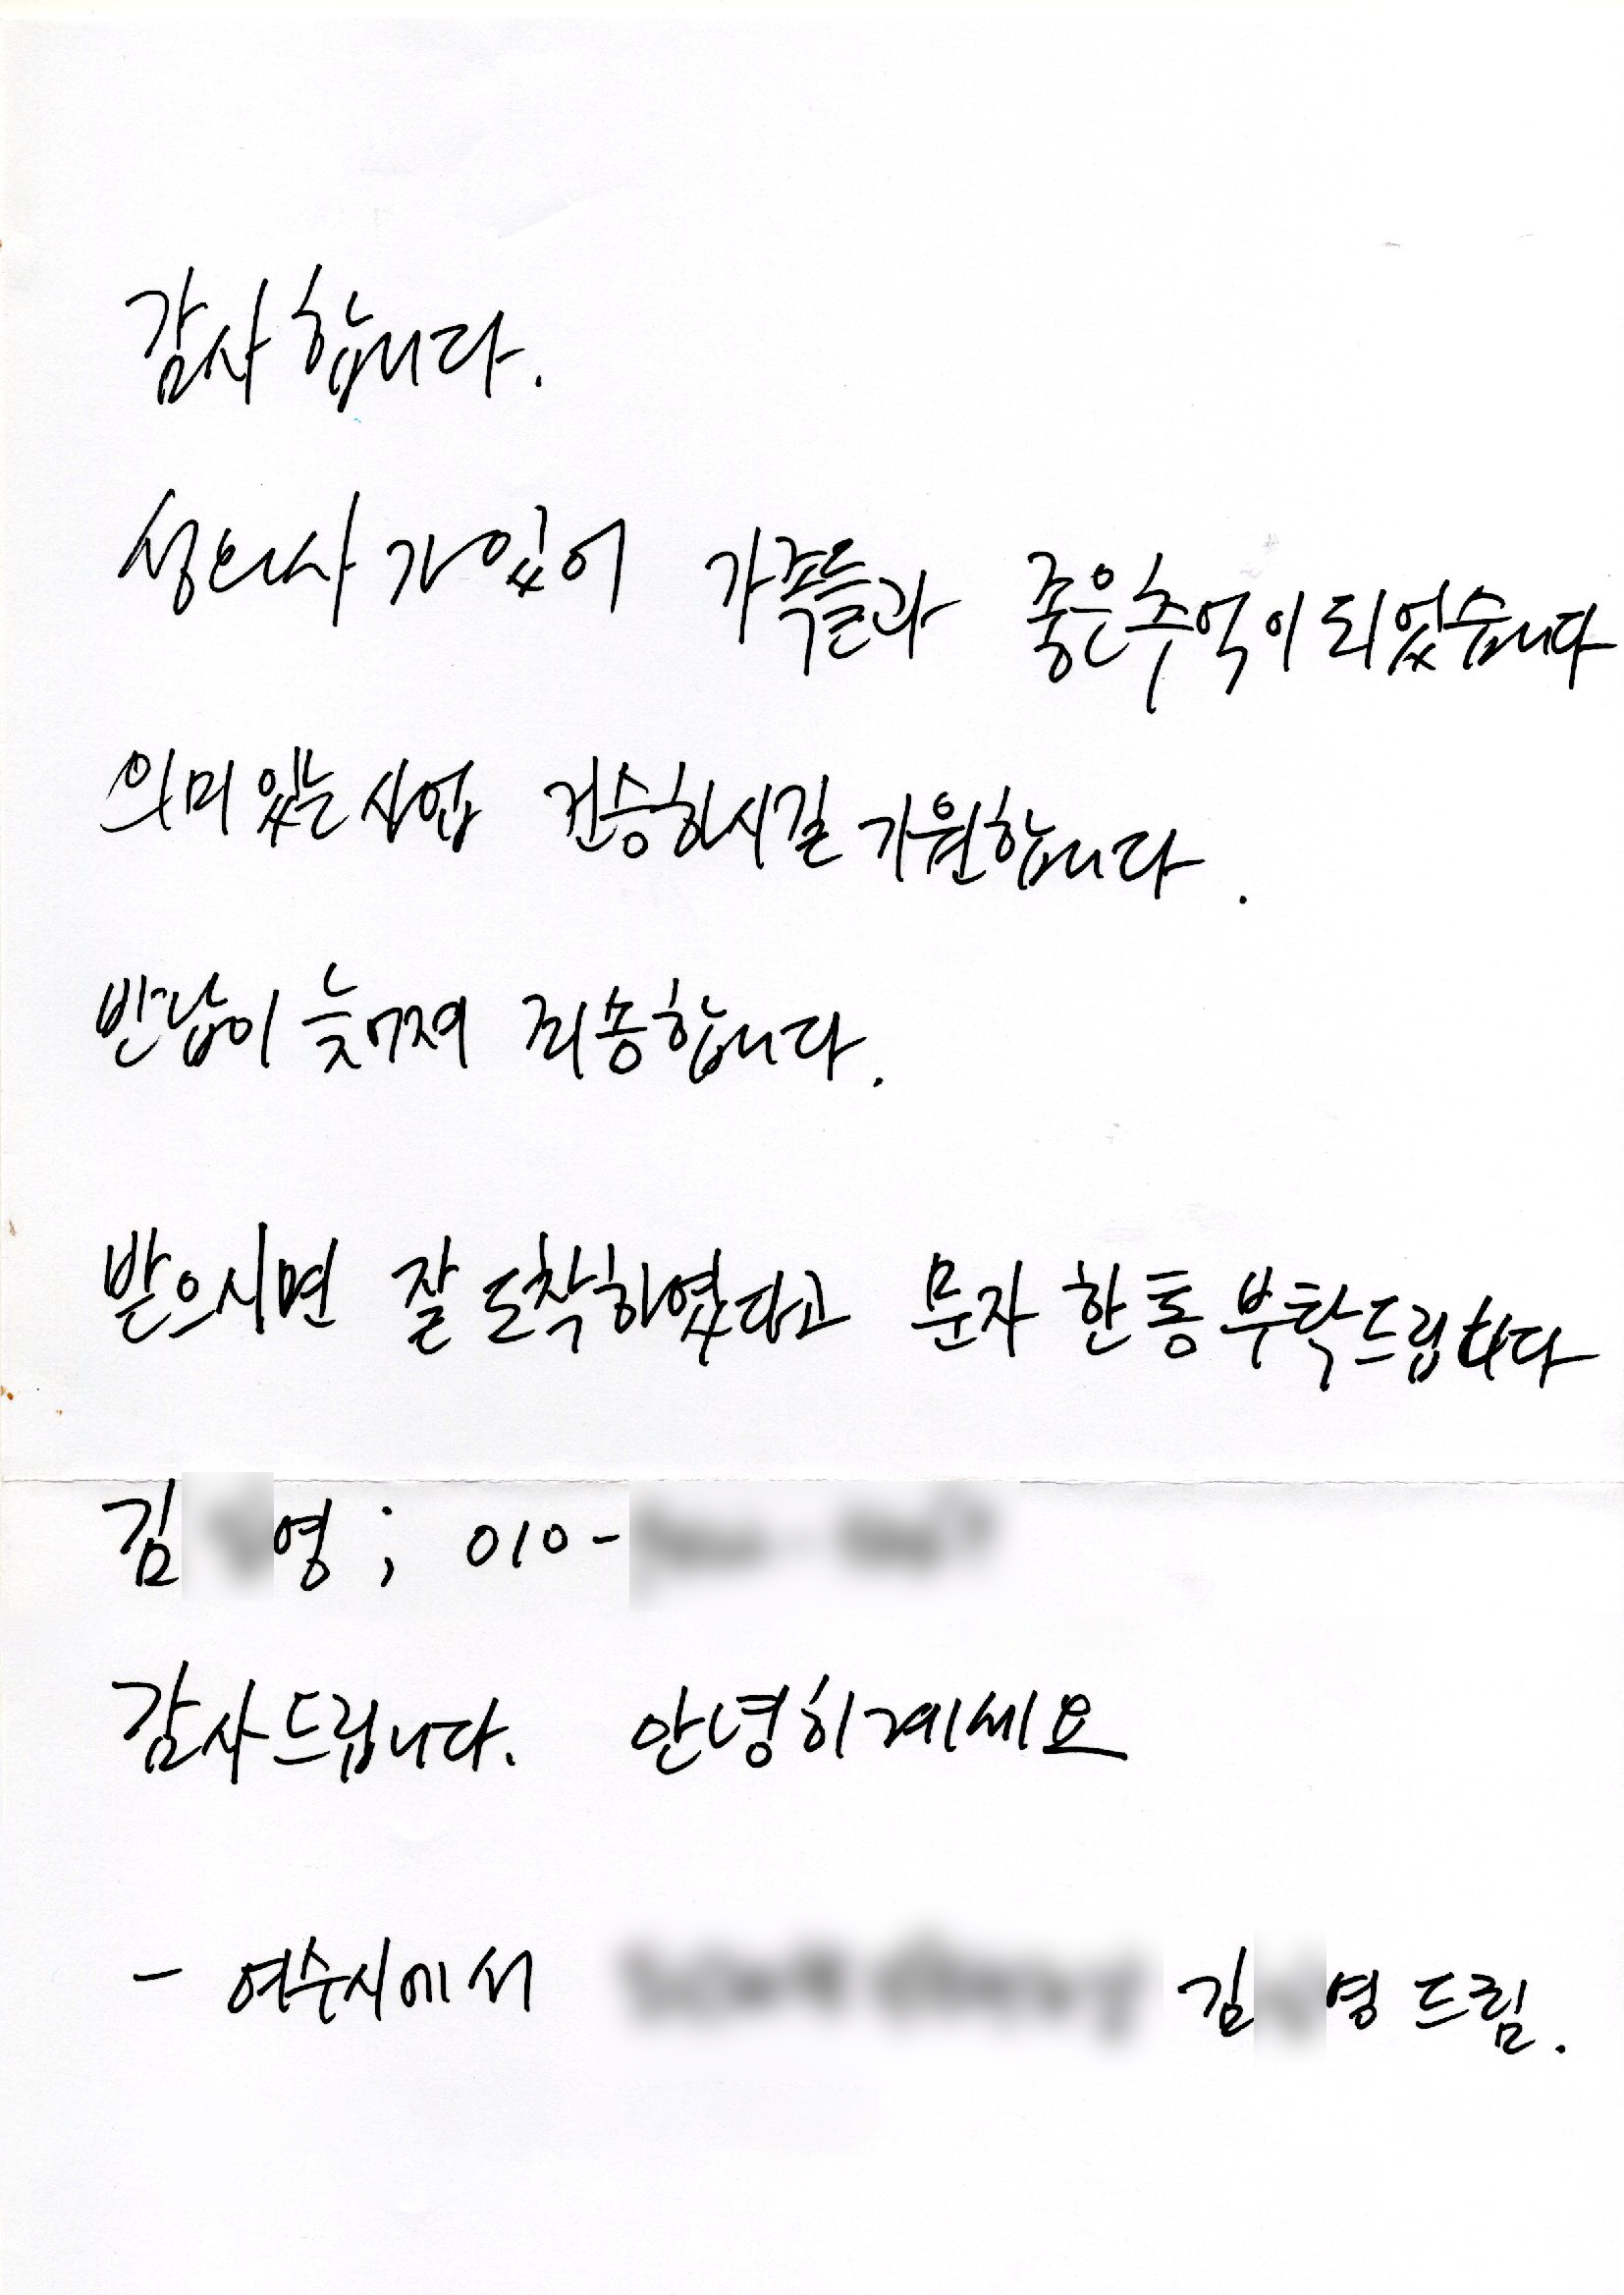 감사합니다.
가 있어 가족들과 좋은 추억이 되었습니다
의미 있는 사업 건승하시길 기원합니다.
반납이 늦어져 죄송합니다.
받으시면 잘 도착하였다고 문자 한통 부탁드립니다
김 영 ; 010-
감사드립니다. 안녕히 계세요
- 여수시에서 김 영 드림.